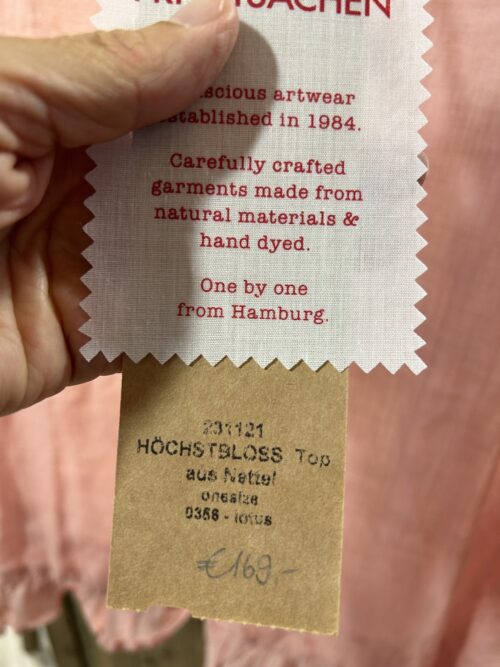 scious artwear
established in 1984.
Carefully crafted
garments made from
natural materials &
hand dyed.
One by one
from Hamburg.
231121
HÖCHSTBLOSS Top
aus Nettel
onesize
0356 - lotus
€169,-